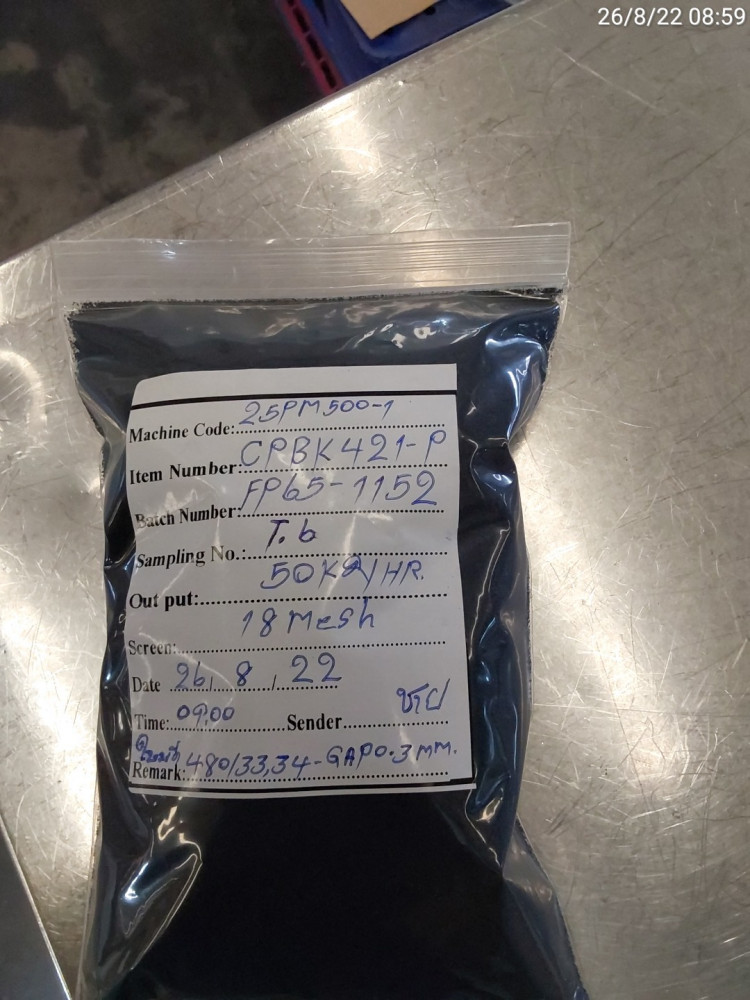 26/8/22 08:59
Machine Code: 25PM500-1
Item Number: CPBK421-P
Batch Number: FP65-1152
Sampling No.: T.6
Out put: 50Kg/HR.
Screen: 18 Mesh
Date 26/ 8 / 22
Time: 09.00 Sender
Remark: 480/33,34-GAP0.3MM.